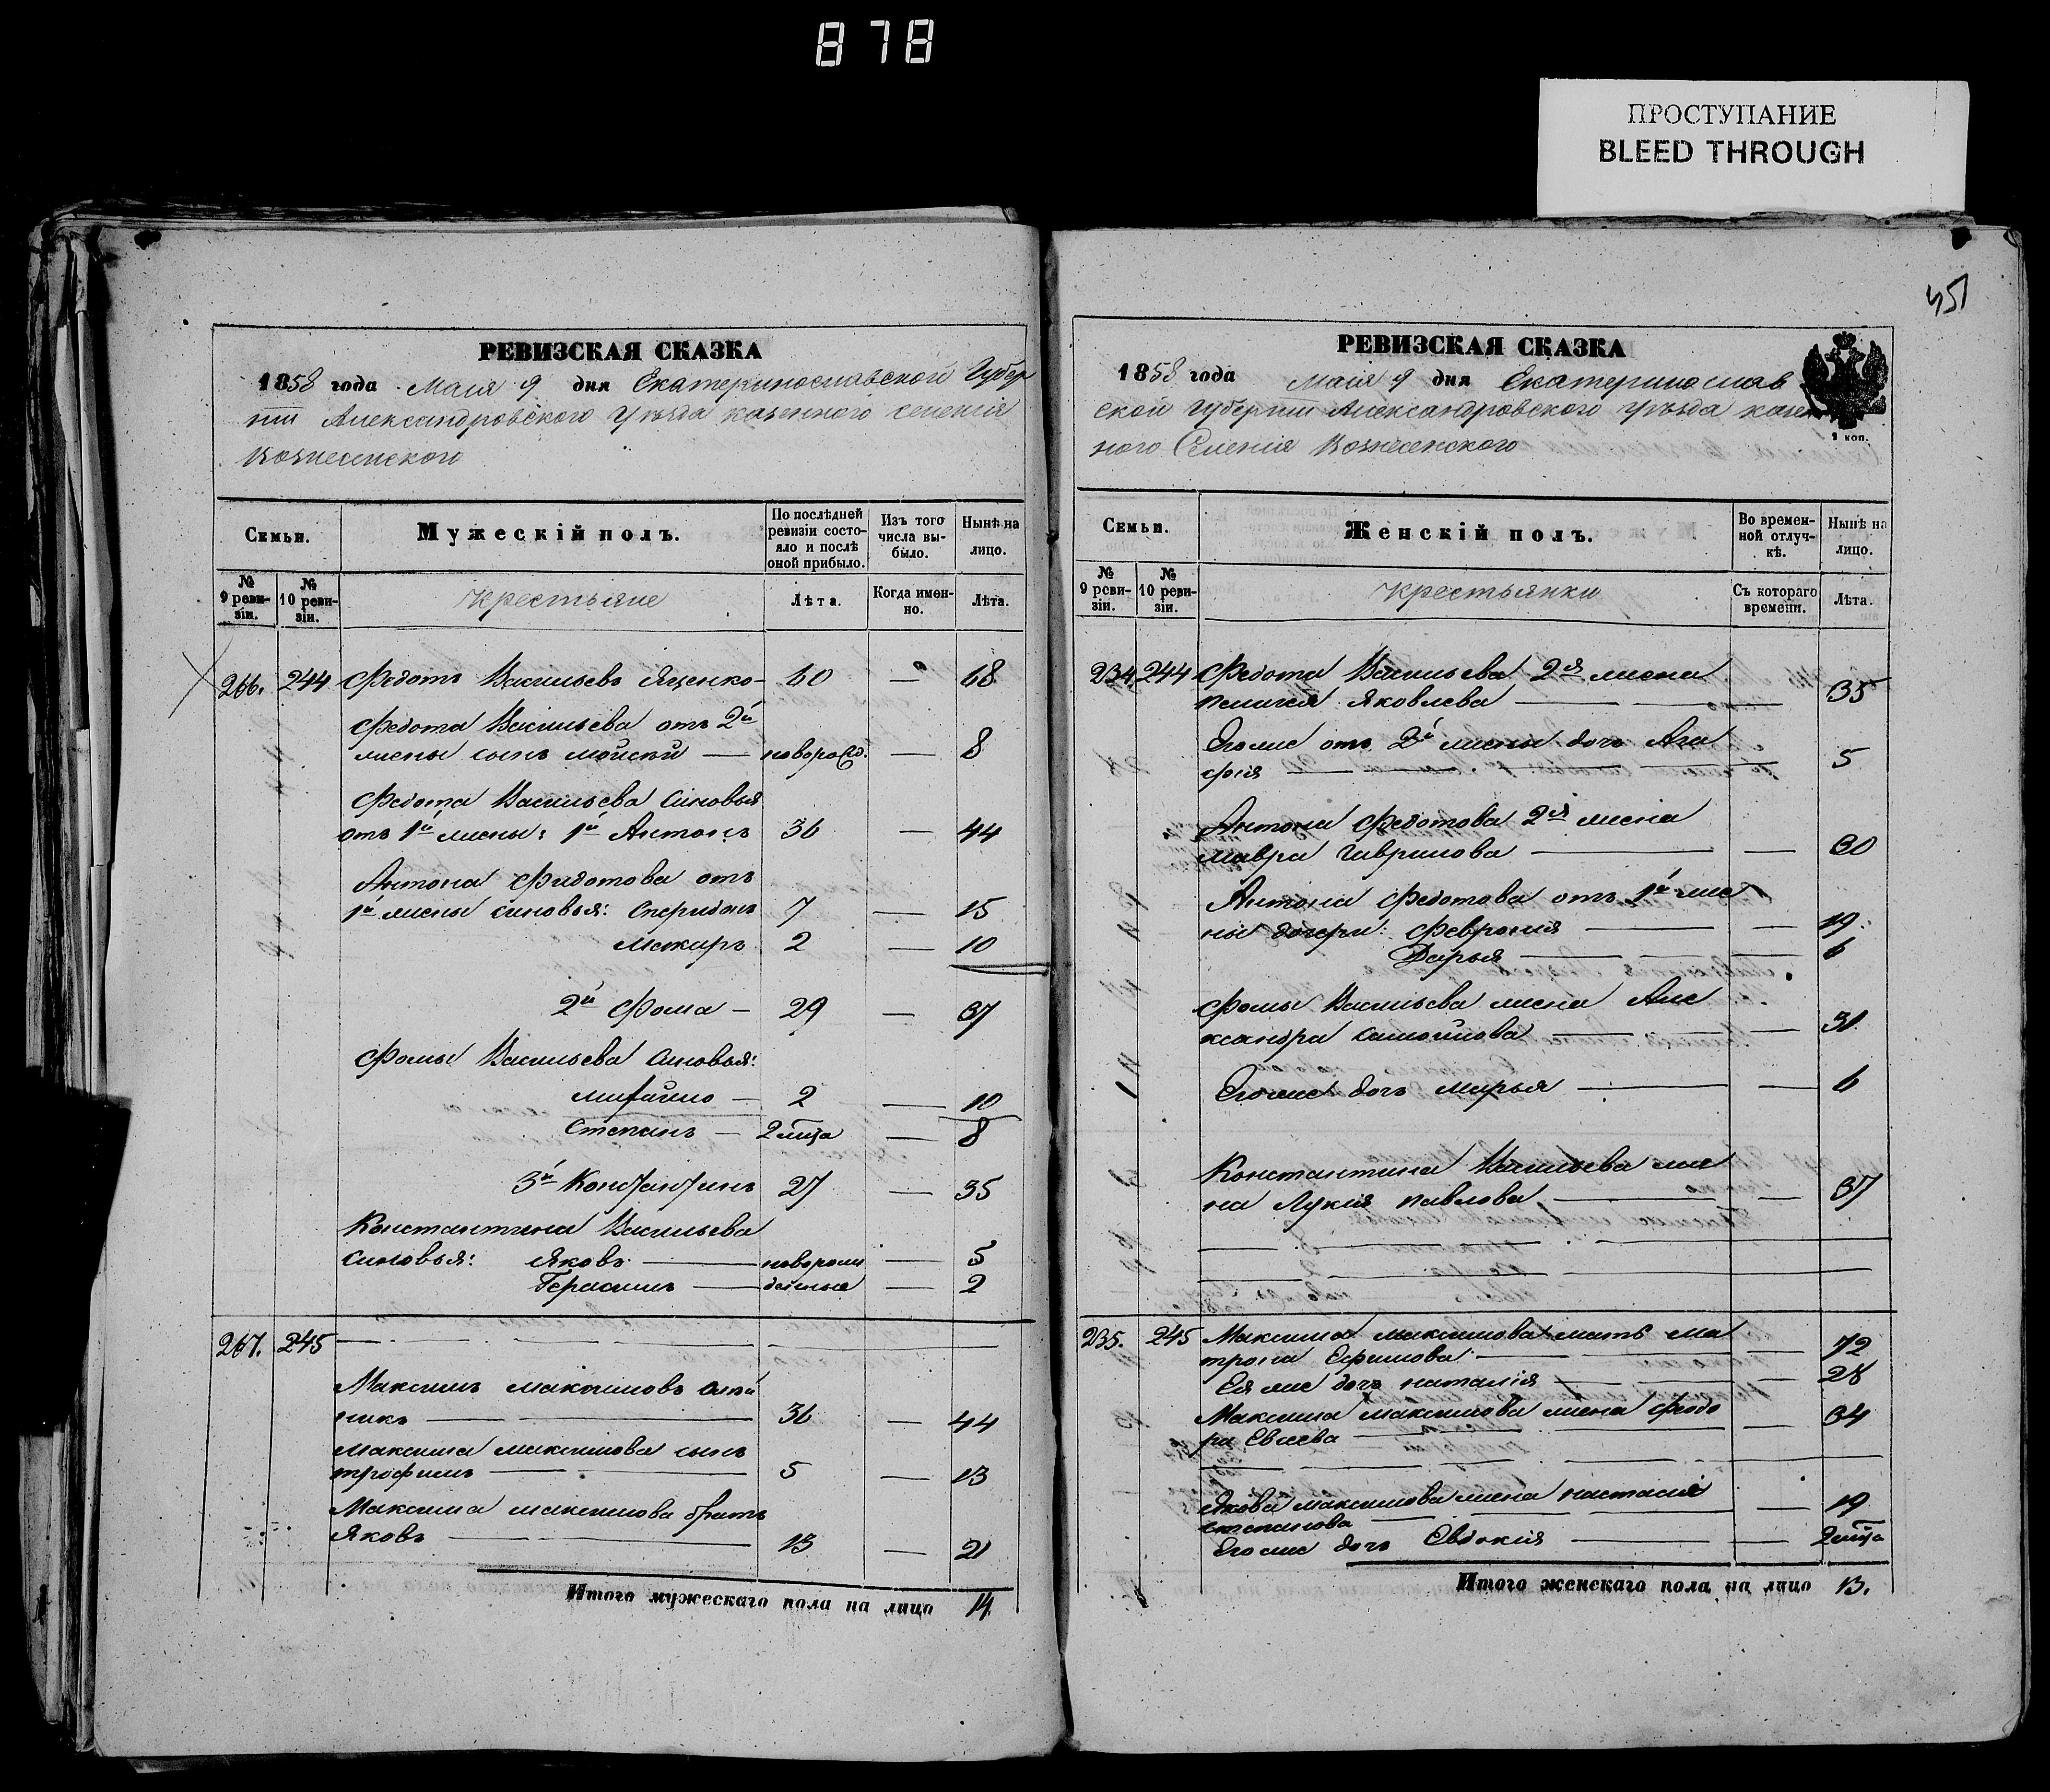 878
ПРОСТУПАНИЕ
BLEED THROUGH
451
РЕВИЗСКАЯ СКАЗКА
1858 года Маия 9 дня Екатеринославской Губер
нии Александровского Уѣзда казенного селенія
Вознесенского
Семьи.
Мужескій полъ.
По послѣдней ревизіи состояло и послѣ оной прибыло.
Изъ того числа выбыло.
Нынѣ на лицо.
№ 9 ревизіи.
№ 10 ревизіи.
Крестьяне
Лѣта.
Когда именно.
Лѣта.
266. 244 Федотъ Васильевъ Яценко - 60 — 68
Федота Васильева отъ 2й
жены сынъ Мойсей — наворожд. — 8
Федота Васильева синовья
отъ 1й жены: 1й Антонъ 36 — 44
Антона Федотова отъ
1й жены синовья: Спиридонъ 7 — 15
Макаръ 2 — 10
2й Фома — 29 — 37
Фомы Васильева синовья:
Михайло — 2 — 10
Степанъ — 2 мца — 8
3й Константинъ 27 — 35
Константина Васильева
синовья: Яковъ — наворож — 5
Герасимъ — денные — 2
267. 245
Максимъ Максимовъ Олѣй
никъ — 36 — 44
Максима Максимова сынъ
Трофимъ — 5 — 13
Максима Максимова братъ
Яковъ — 13 — 21
Итого мужескаго пола на лицо 14.
РЕВИЗСКАЯ СКАЗКА
1858 года Маия 9 дня Екатеринослав
ской Губерніи Александровского Уѣзда казен
ного Селенія Вознесенского
2 коп.
Семьи.
Женскій полъ.
Во временной отлучкѣ.
Нынѣ на лицо.
№ 9 ревизіи.
№ 10 ревизіи.
Крестьянки
Съ котораго времени.
Лѣта.
234. 244 Федота Васильева 2я жена
Яковлева — 35
Егоже отъ 2й жены дочь Ага
фія — 5
Антона Федотова 2я жена
Мавра Гаврилова — 30
Антона Федотова отъ 1й же
ны дочери: Феврония — 19
Дарья — 6
Фомы Васильева жена Але
ксандра Самойлова — 31
Егоже дочь Марья — 6
Константина Васильева же
на Лукія Павлова — 37
235. 245 Максима Максимова мать Ма
трона Ефимова — 72
Ея же дочь Наталія — 28
Максима Максимова жена Федо
ра Евсеева — 34
Якова Максимова жена Настасія
Степанова — 19
Егоже дочь Евдокія — 2 мца
Итого женскаго пола на лицо 13.